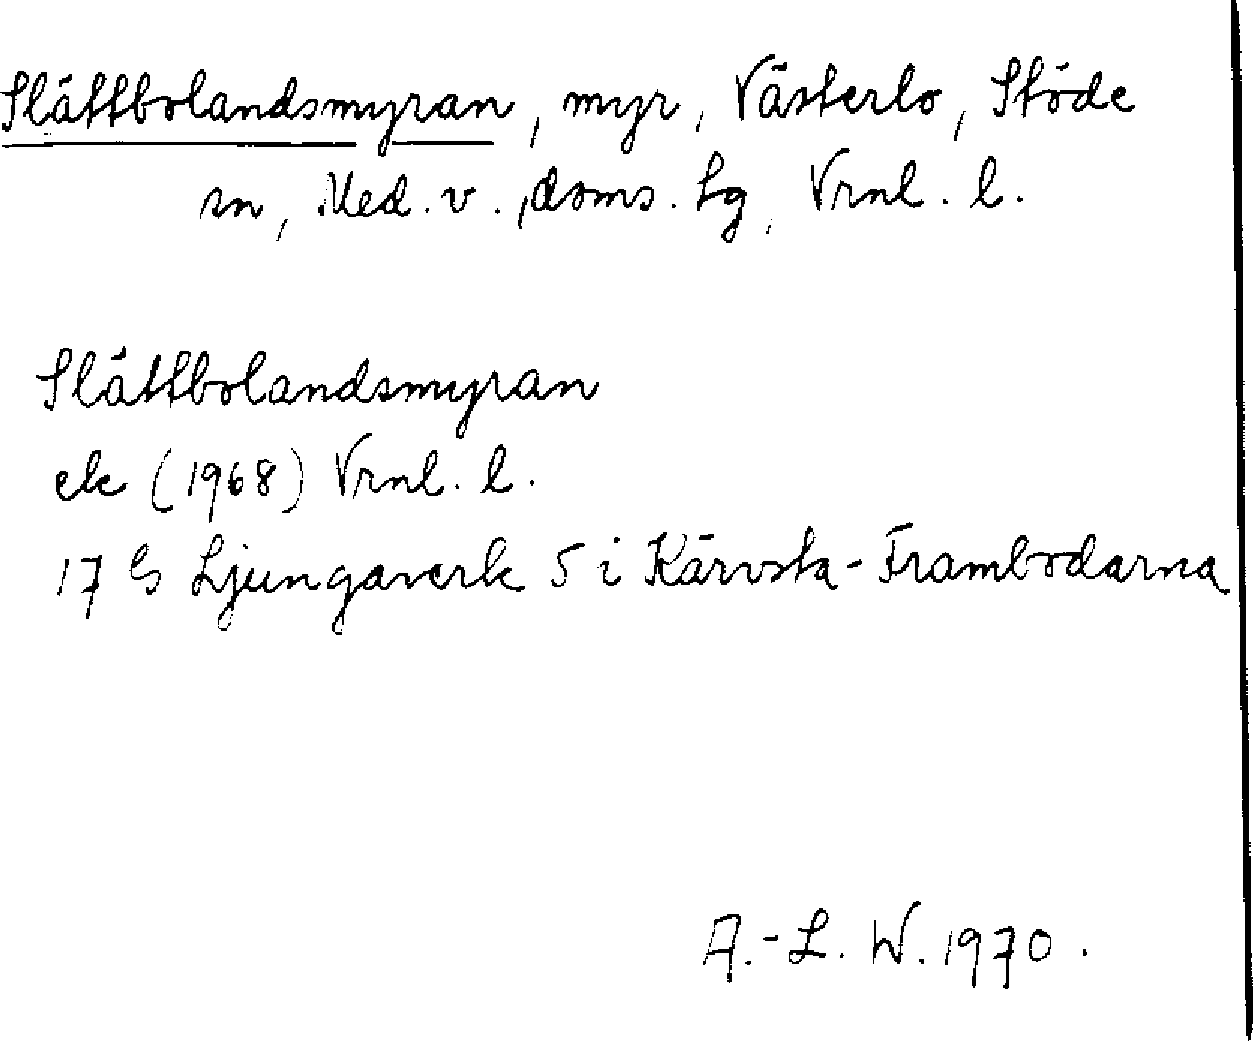 Slåttbolandsmyran, myr, Västerlo, Stöde
sn, Med. v., doms. lg, Vrnl. l.
Slåttbolandsmyran
ek (1968) Vrnl. l.
17 G Ljungaverk 5 i Kärvsta-Frambodarna
A.-L. W. 1970.